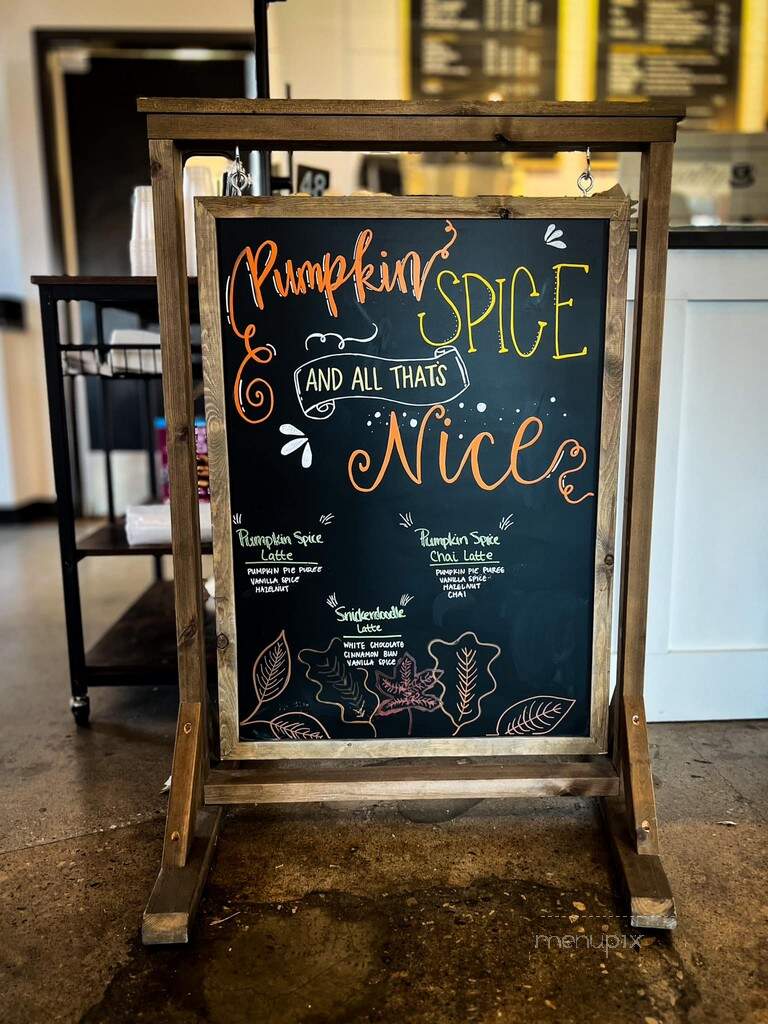 48
Pumpkin
SPICE
AND ALL THAT'S
Nice
Pumpkin Spice
Latte
PUMPKIN PIE PUREE
VANILLA SPICE
HAZELNUT
Pumpkin Spice
Chai Latte
PUMPKIN PIE PUREE
VANILLA SPICE
HAZELNUT
CHAI
Snickerdoodle
Latte
WHITE CHOCOLATE
CINNAMON BUN
VANILLA SPICE
menupix